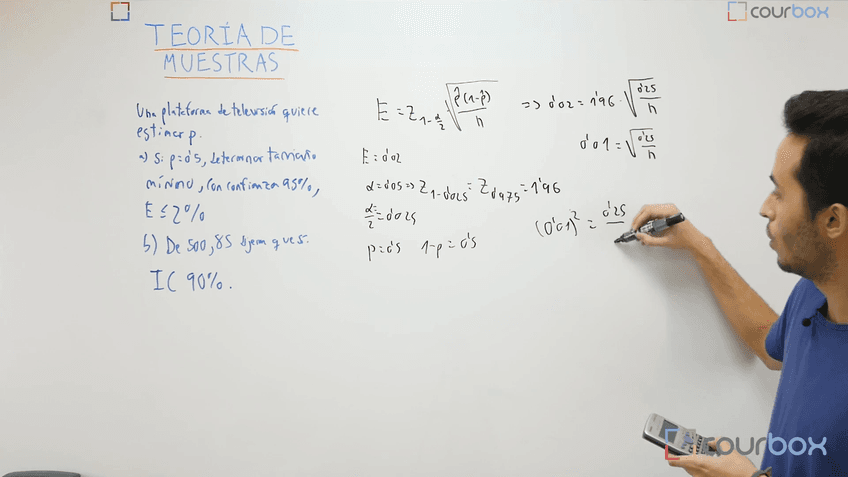 courbox
TEORÍA DE
MUESTRAS
Una plataforma de televisión quiere
estimar p.
a) Si p=0'5, determinar tamaño
mínimo, con confianza 95%,
E ≤ 2%
b) De 500, 85 dijeron que sí.
IC 90%.
E = Z_{1-α/2} √(p̂(1-p̂)/n) => 0'02 = 1'96 · √(0'25/n)
0'01 = √(0'25/n)
E = 0'02
α = 0'05 => Z_{1-0'025} = Z_{0'975} = 1'96
α/2 = 0'025
p = 0'5 1-p = 0'5
(0'01)² = 0'25
courbox